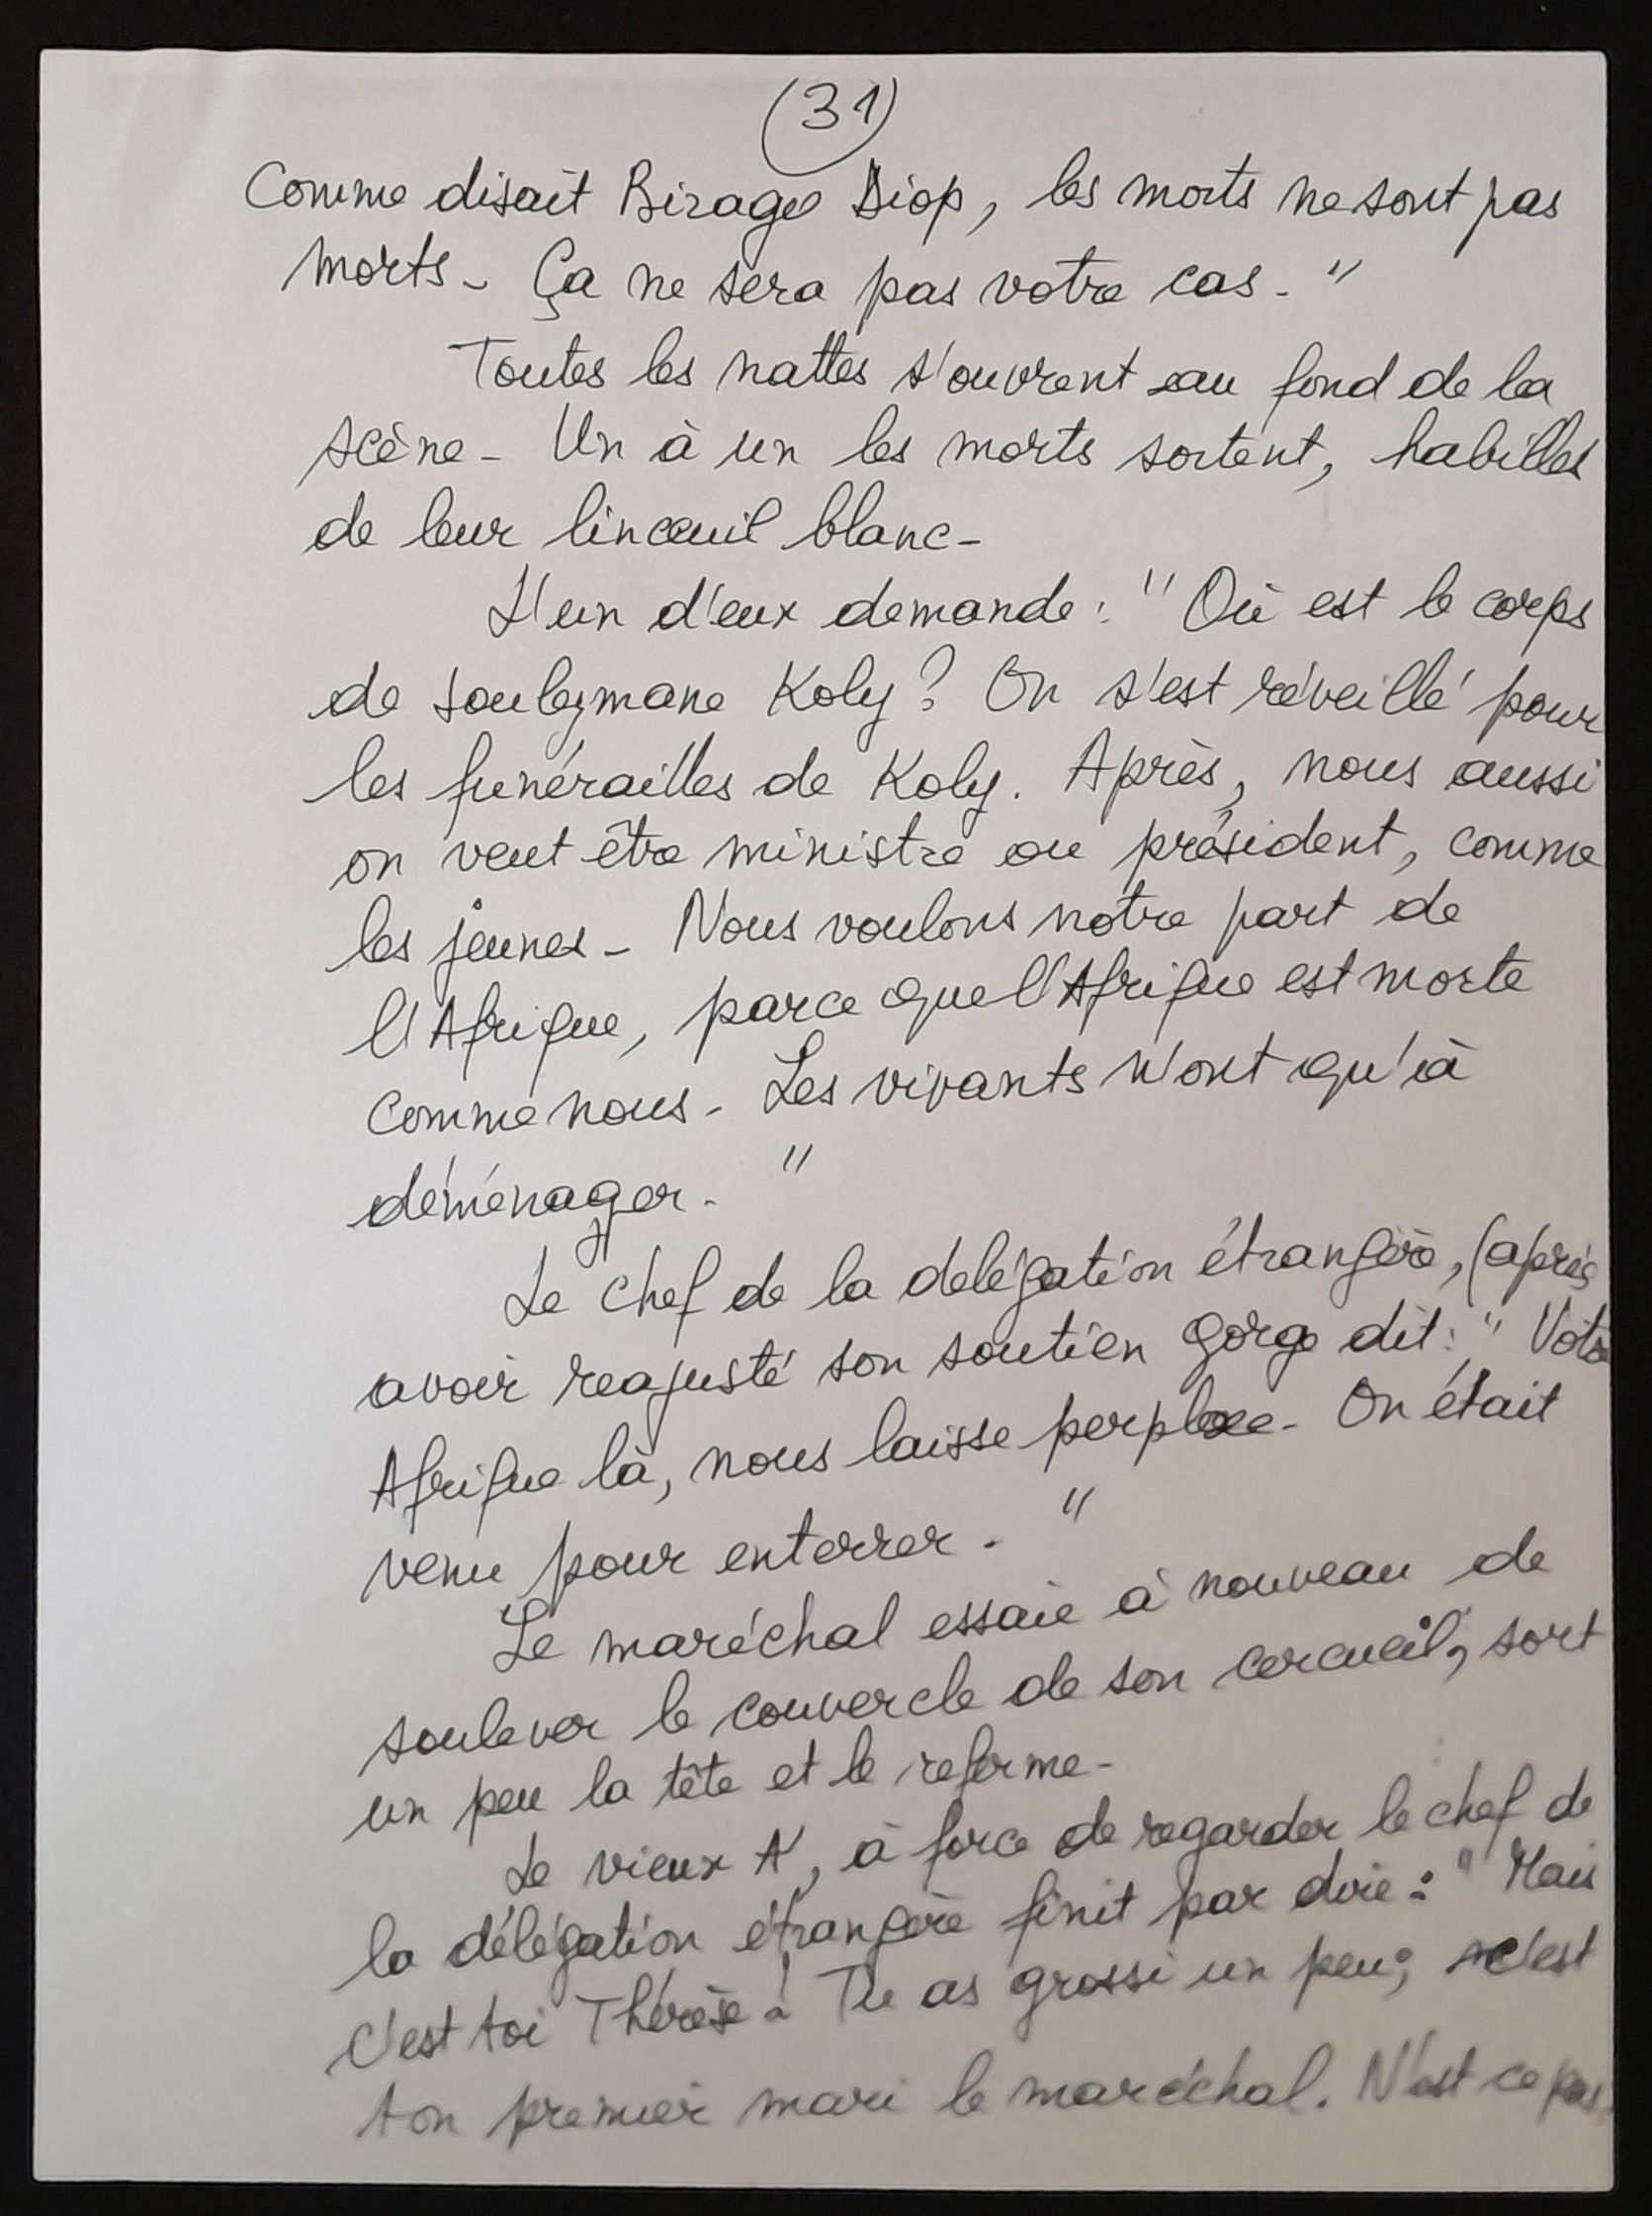 (31)
Comme disait Birago Diop, les morts ne sont pas
morts - Ça ne sera pas votre cas - "
Toutes les nattes s'ouvrent au fond de la
scène - Un à un les morts sortent, habillés
de leur linceuil blanc -
L'un d'eux demande : " Où est le corps
de Souleymane Koly ? On s'est réveillé pour
les funérailles de Koly. Après, nous aussi
on veut être ministre ou président, comme
les jeunes - Nous voulons notre part de
l'Afrique, parce que l'Afrique est morte
comme nous - Les vivants n'ont qu'à
déménager - "
Le chef de la délégation étrangère, (après
avoir reajusté son soutien gorge dit : " Votre
Afrique là, nous laisse perplexe - On était
venu pour enterrer - "
Le maréchal essaie à nouveau de
soulever le couvercle de son cercueil, sort
un peu la tête et le referme -
Le vieux A, à force de regarder le chef de
la délégation étrangère finit par dire : " Mais
c'est toi Thérèse ! Tu as grossi un peu ; c'est
ton premier mari le maréchal. N'est ce pas